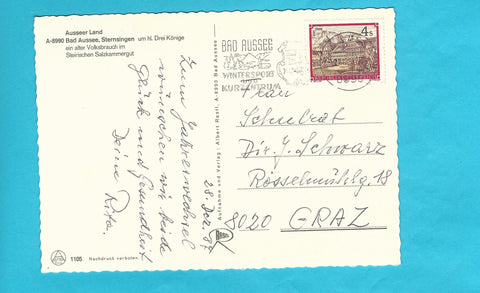 Ausseer Land
A-8990 Bad Aussee, Sternsingen um hl. Drei Könige
ein alter Volksbrauch im
Steirischen Salzkammergut
Zum Jahreswechsel
wünschen wir beide
Glück und Gesundheit
Deine Rita.
28. Dez. 87
1105 Nachdruck verboten.
Aufnahme und Verlag: Albert Rastl, A-8990 Bad Aussee
BAD AUSSEE
WINTERSPORT
KURZENTRUM
4 S
Frau
Schulrat
Dir. J. Schwarz
Rösselmühlg. 18
8020 GRAZ